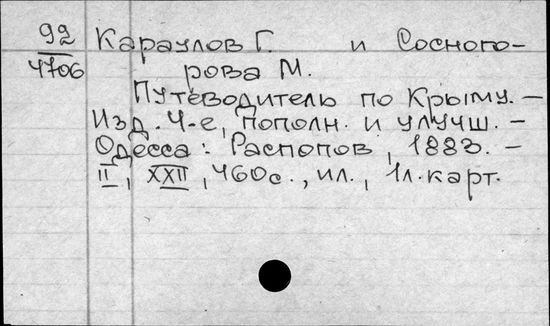 92 Караулов Г. и Сосного-
4706 рова М.
Путеводитель по Крыму. –
Изд. 4-е, пополн. и улучш. –
Одесса: Распопов, 1883. –
II, XXII, 460с., ил., 1л. карт.